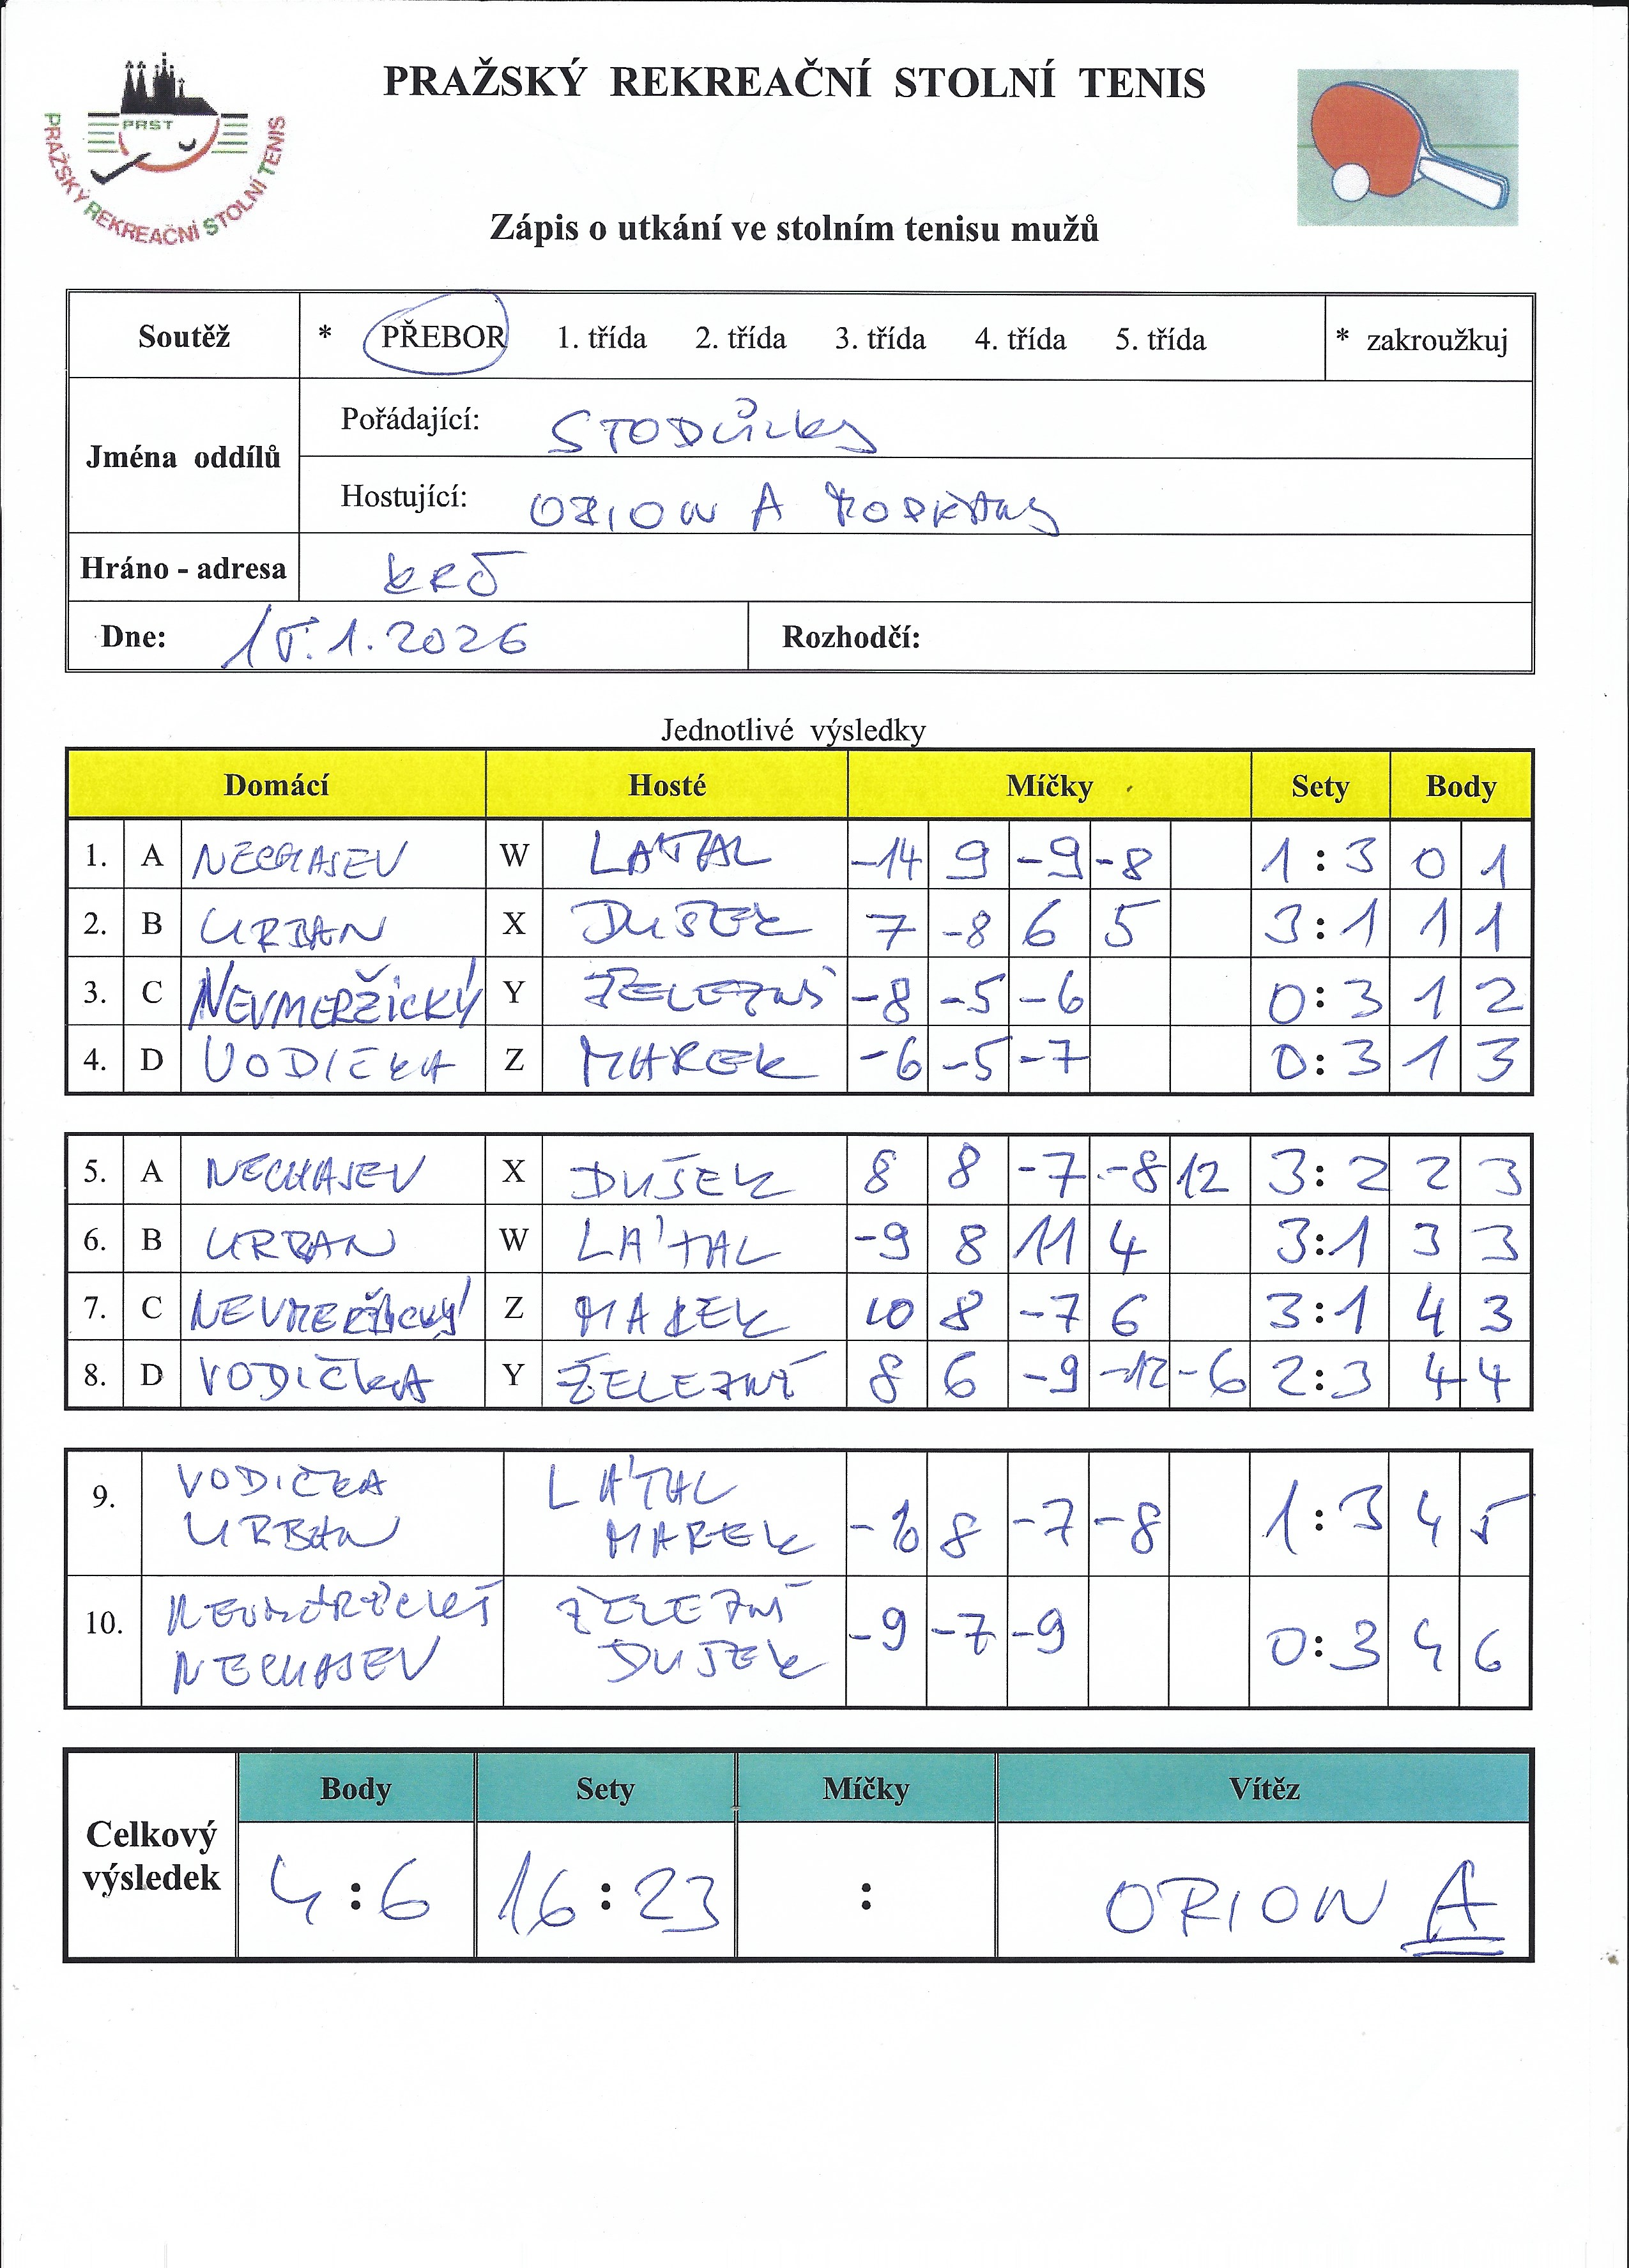 PRST
PRAŽSKÝ REKREAČNÍ STOLNÍ TENIS
PRAŽSKÝ REKREAČNÍ STOLNÍ TENIS
Zápis o utkání ve stolním tenisu mužů
Soutěž * PŘEBOR 1. třída 2. třída 3. třída 4. třída 5. třída * zakroužkuj
Jména oddílů
Pořádající: STODŮLKY
Hostující: ORION A MODŘANY
Hráno - adresa KRČ
Dne: 15.1.2026 Rozhodčí:
Jednotlivé výsledky
Domácí Hosté Míčky Sety Body
1. A NECHAJEV W LÁTAL -14 9 -9 -8 1 : 3 0 1
2. B URBAN X DUŠEK 7 -8 6 5 3 : 1 1 1
3. C NEVMERŽICKÝ Y ŽELEZNÝ -8 -5 -6 0 : 3 1 2
4. D VODIČKA Z MAREK -6 -5 -7 0 : 3 1 3
5. A NECHAJEV X DUŠEK 8 8 -7 -8 12 3 : 2 2 3
6. B URBAN W LÁTAL -9 8 11 4 3 : 1 3 3
7. C NEVMERŽICKÝ Z MAREK 10 8 -7 6 3 : 1 4 3
8. D VODIČKA Y ŽELEZNÝ 8 6 -9 -12 -6 2 : 3 4 4
9. VODIČKA LÁTAL
URBAN MAREK -10 8 -7 -8 1 : 3 4 5
10. NEVMERŽICKÝ ŽELEZNÝ -9 -7 -9 0 : 3 4 6
NECHAJEV DUŠEK
Body Sety Míčky Vítěz
Celkový výsledek 4 : 6 16 : 23 : ORION A